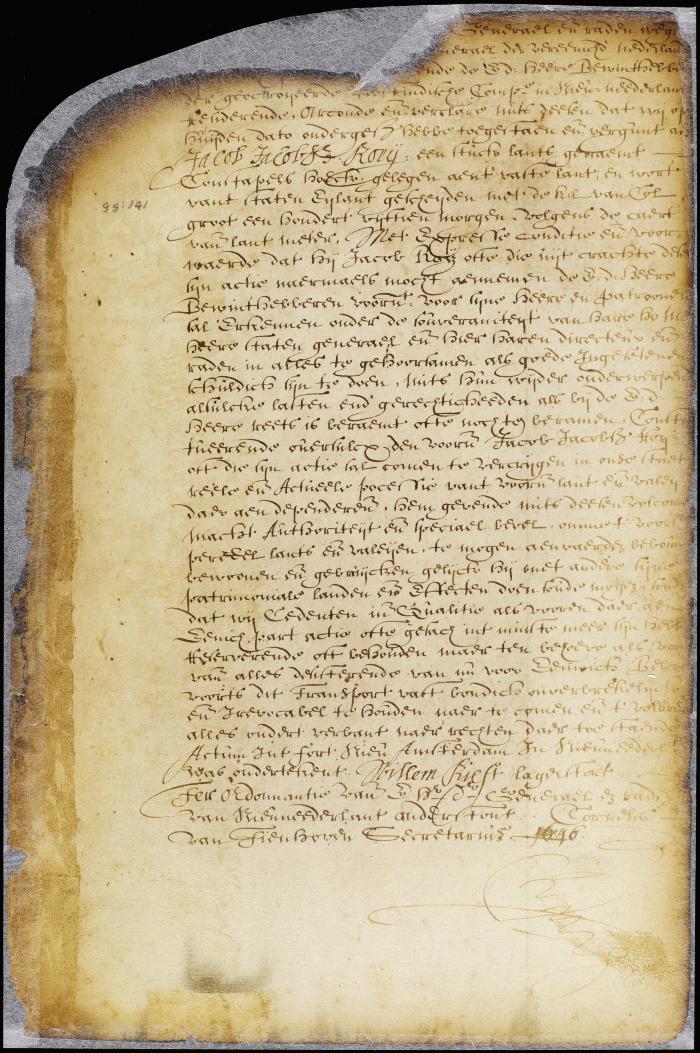 Generael en raden weg
nerael der vereenichd nederlan
ende de E d: heere Bewinthebbe
der geoctroijeerde westindische Compe in Nieu nederlant
Residerende, Oirconde en verclare mits deesen dat wij op
huijden dato ondergesz hebbe toegestaen en vergunt a
Jacob Jacobsz Roij: een stuck lants genaemt
Constapels hoeck gelegen aent vaste lant, en wort
vant Staten Eijlant gescheijden met de kil van Col
groot een hondert vijftien morgen volgens de caert
van lant meter, Met Expresse conditie en voor
waerde dat hij Jacob Roij ofte die uijt crachte dese
sijn actie naermaels mocht aennemen de E. d: heere
Bewinthebberen voorn: voor sijne heere en patroonen
sal Erkennen onder de souveraniteijt van hare ho: Mo
heere staten generael en hier haren directeur en
raden in alles te gehoorsamen als goede Ingesetenen
schuldich sijn te doen, mits hun wijder onderwerpen
alsulcke lasten ende gerechticheeden als bij de E. d.
heere reets is beraemt ofte noch te beramen, Consti
tueerende oversulcx den voorn Jacob Jacobsz Roij
oft die sijn actie sal comen te vercrijgen in onse staet
reele en Actueele possessie vant voorn lant en valeij
daer aen dependeren, hem gevende mits deesen volcom
macht Authoriteijt en speciael bevel, ommet voors
perceel lants en valeijen, te mogen aenvaerden bebouwen
bewoonen en gebruijcken gelijck hij met andere sijne
patrimoniale landen en Effecten doen soude mogen, sond
dat wij Cedenten in Qualitie als vooren daer aen
Eenich part actie ofte gesach int minste meer sijn hebb
Reserverende oft behouden maer ten behoeve als vo
van alles desisterende van nu voor Eeuwich, Belov
voorts dit Transport vast bondich onverbreckelijck
en Irevocabel te houden naer te comen en t volbren
alles ondert verbant naer rechten daer toe staende
Actum Int fort Nieu Amsterdam In Nieuneederl
was onderteikent. Willem Kieft lager stont
Ter Ordonnantie van Generael en rade
van Nieuneederlant onderstont. Cornelis
van Tienhoven Secretarius 1646